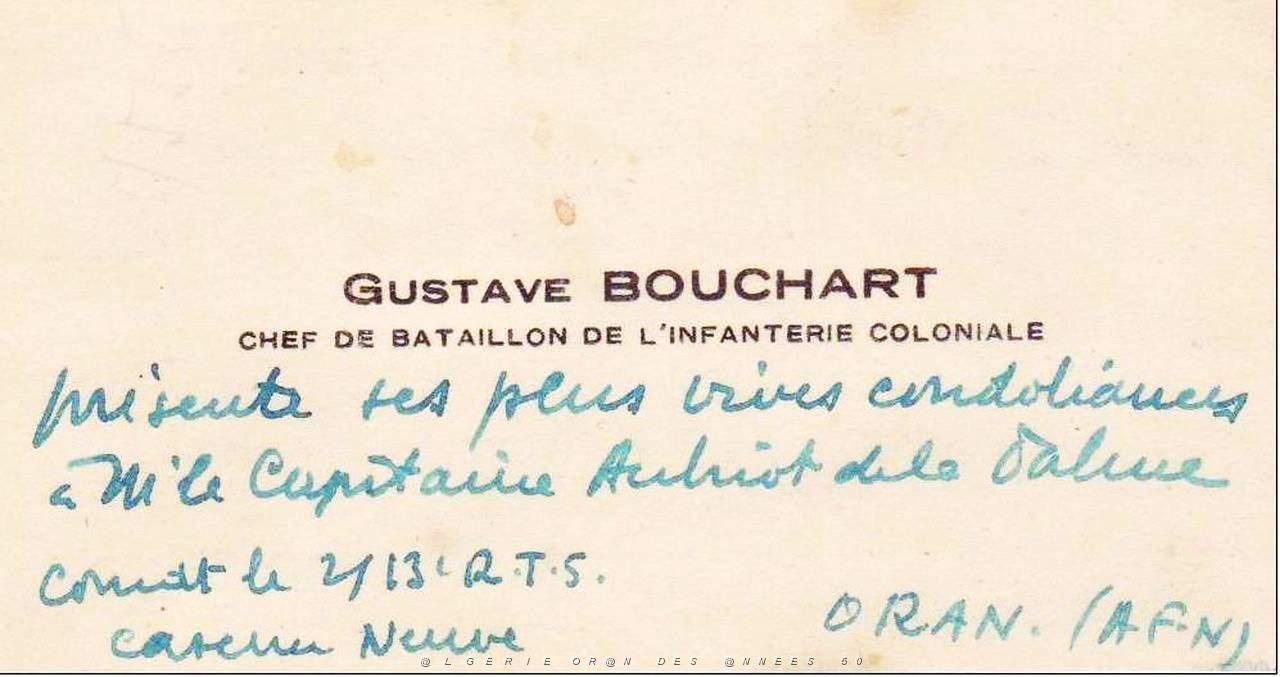 GUSTAVE BOUCHART
CHEF DE BATAILLON DE L'INFANTERIE COLONIALE
présente ses plus vives condoléances
à Mr le Capitaine Aubriot de la
Comdt le 2/13e R.T.S.
Caserne Neuve
ORAN. (A.F.N)
@LGERIE OR@N DES @NNEES 50